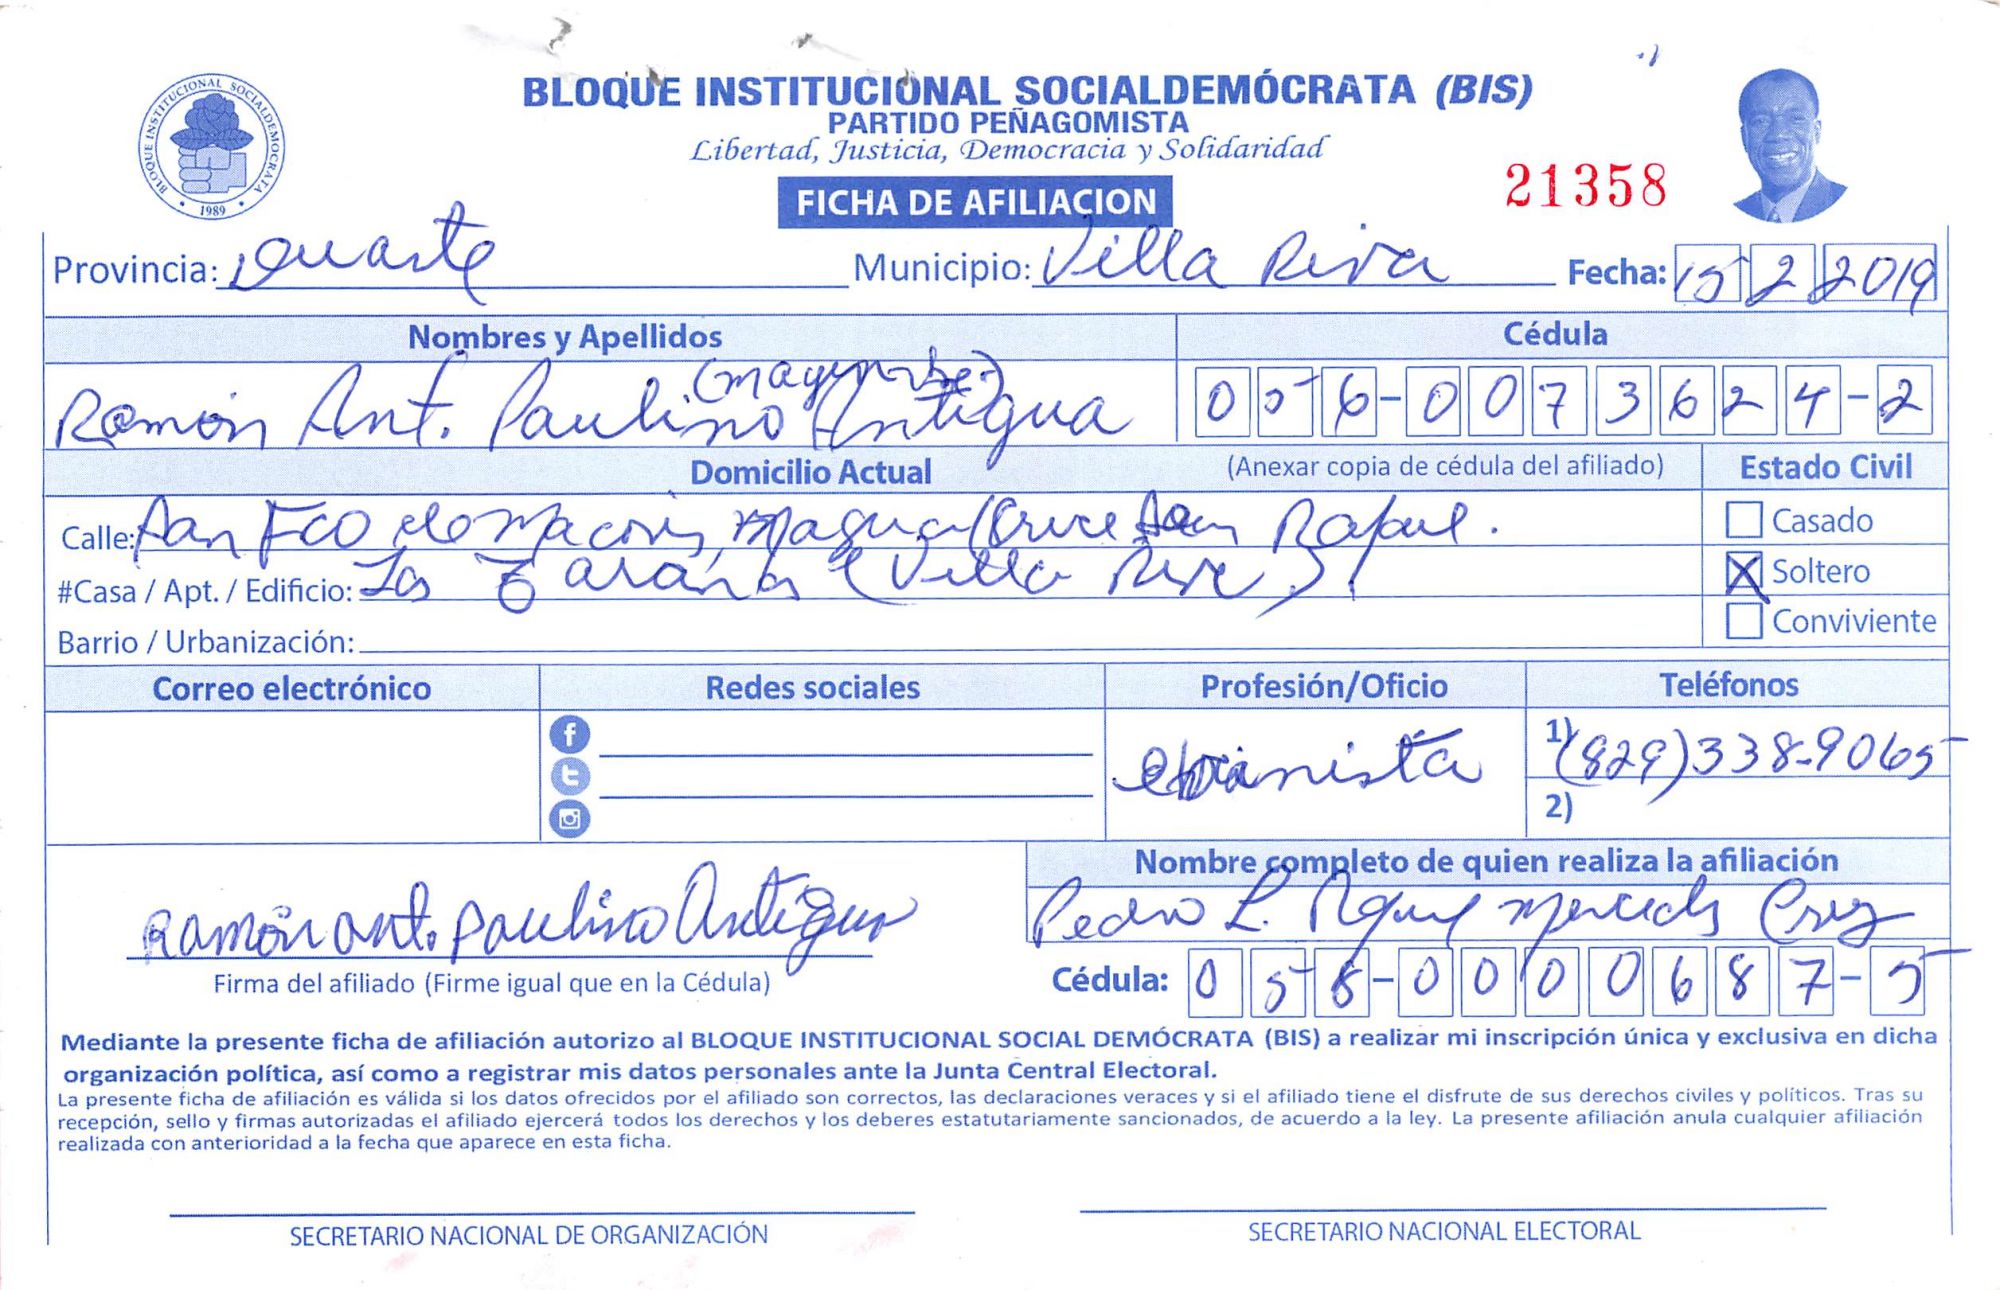 BLOQUE INSTITUCIONAL SOCIALDEMÓCRATA (BIS)
PARTIDO PEÑAGOMISTA
Libertad, Justicia, Democracia y Solidaridad
BLOQUE INSTITUCIONAL SOCIALDEMOCRATA
• 1989 •
21358
FICHA DE AFILIACION
Provincia: Duarte Municipio: Villa Riva Fecha: 15 2 2019
Nombres y Apellidos Cédula
Ramón Ant. Paulino Antigua 0 5 6 - 0 0 7 3 6 2 4 - 2
Domicilio Actual (Anexar copia de cédula del afiliado) Estado Civil
Calle: San Fco de Macoris, Cruce San Rafael. Casado
#Casa / Apt. / Edificio: Las Taranas (Villa Riva). X Soltero
Barrio / Urbanización: Conviviente
Correo electrónico Redes sociales Profesión/Oficio Teléfonos
ebanista 1) (829) 338-9065
2)
Nombre completo de quien realiza la afiliación
Ramón ant. paulino Antigua Pedro L. Mercedes Cruz
Firma del afiliado (Firme igual que en la Cédula) Cédula: 0 5 8 - 0 0 0 0 6 8 7 - 5
Mediante la presente ficha de afiliación autorizo al BLOQUE INSTITUCIONAL SOCIAL DEMÓCRATA (BIS) a realizar mi inscripción única y exclusiva en dicha
organización política, así como a registrar mis datos personales ante la Junta Central Electoral.
La presente ficha de afiliación es válida si los datos ofrecidos por el afiliado son correctos, las declaraciones veraces y si el afiliado tiene el disfrute de sus derechos civiles y políticos. Tras su
recepción, sello y firmas autorizadas el afiliado ejercerá todos los derechos y los deberes estatutariamente sancionados, de acuerdo a la ley. La presente afiliación anula cualquier afiliación
realizada con anterioridad a la fecha que aparece en esta ficha.
SECRETARIO NACIONAL DE ORGANIZACIÓN SECRETARIO NACIONAL ELECTORAL